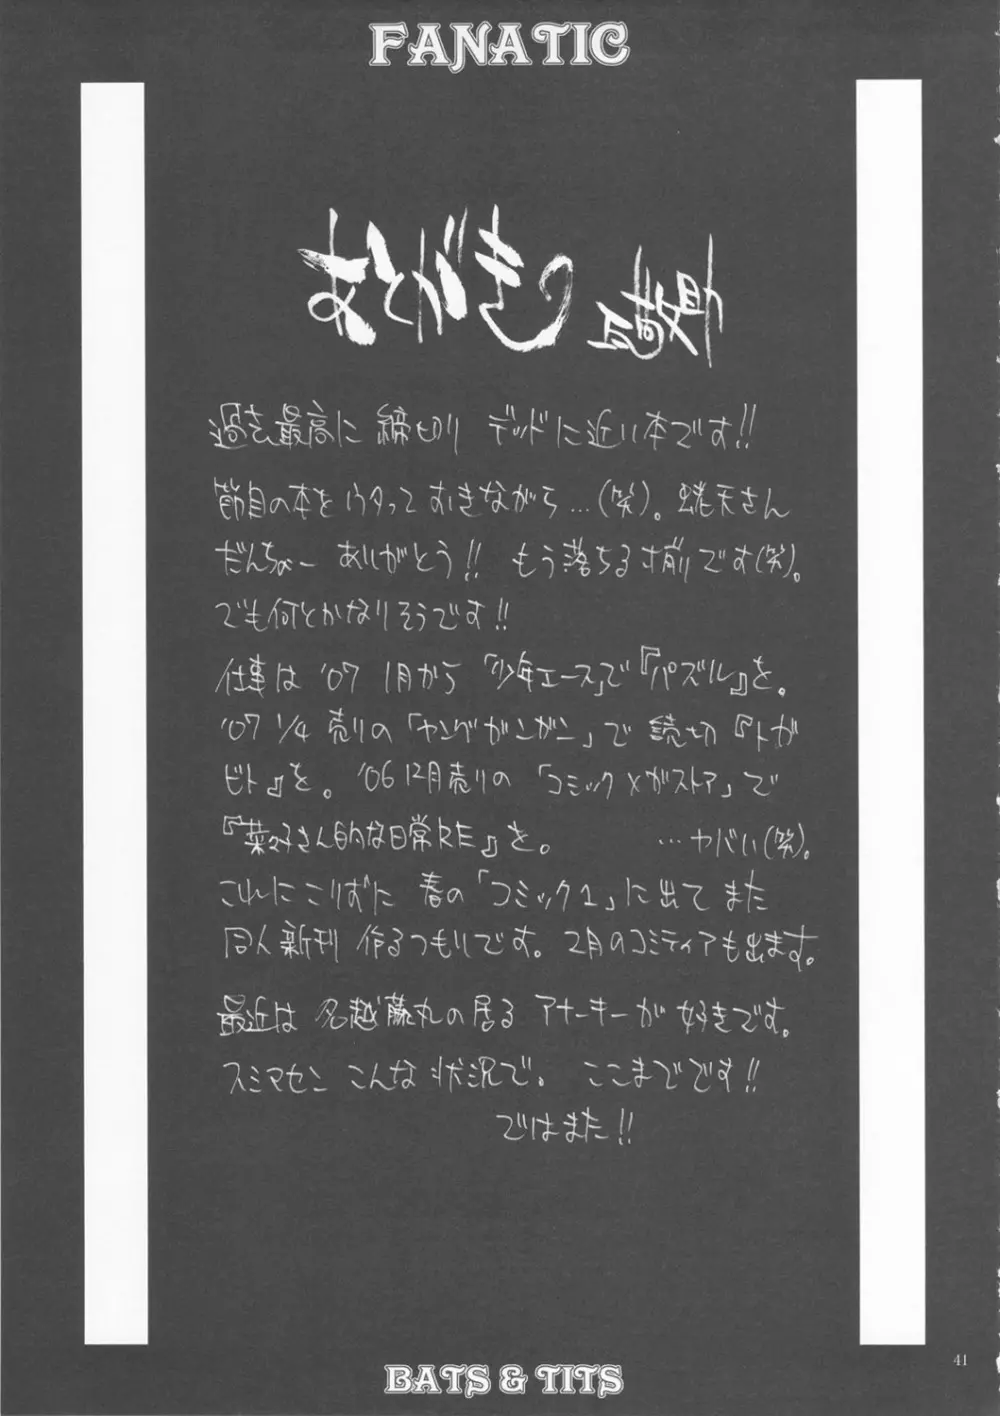 FANATIC
あとがき 瓦敬助
過去最高に 締切り デッドに近い本です!!
節目の本をウタっておきながら…(笑)。蜷天さん
だんちょー ありがとう!! もう落ちる寸前です(笑)。
でも何とかなりそうです!!
仕事は '07 1月から「少年エース」で『パズル』を。
'07 1/4 売りの「ヤングガンガン」で 読切『トガ
ビト』を。'06 12月売りの「コミック×ガストア」で
『菜々子さん的な日常RE』を。 …ヤバい(笑)。
これにこりずに 春の「コミック1」に出て また
同人新刊 作るつもりです。2月のコミティアも出ます。
最近は 名越藤丸の居る アナーキーが 好きです。
スミマセン こんな 状況で。 ここまでです!!
ではまた!!
BATS & TITS
41